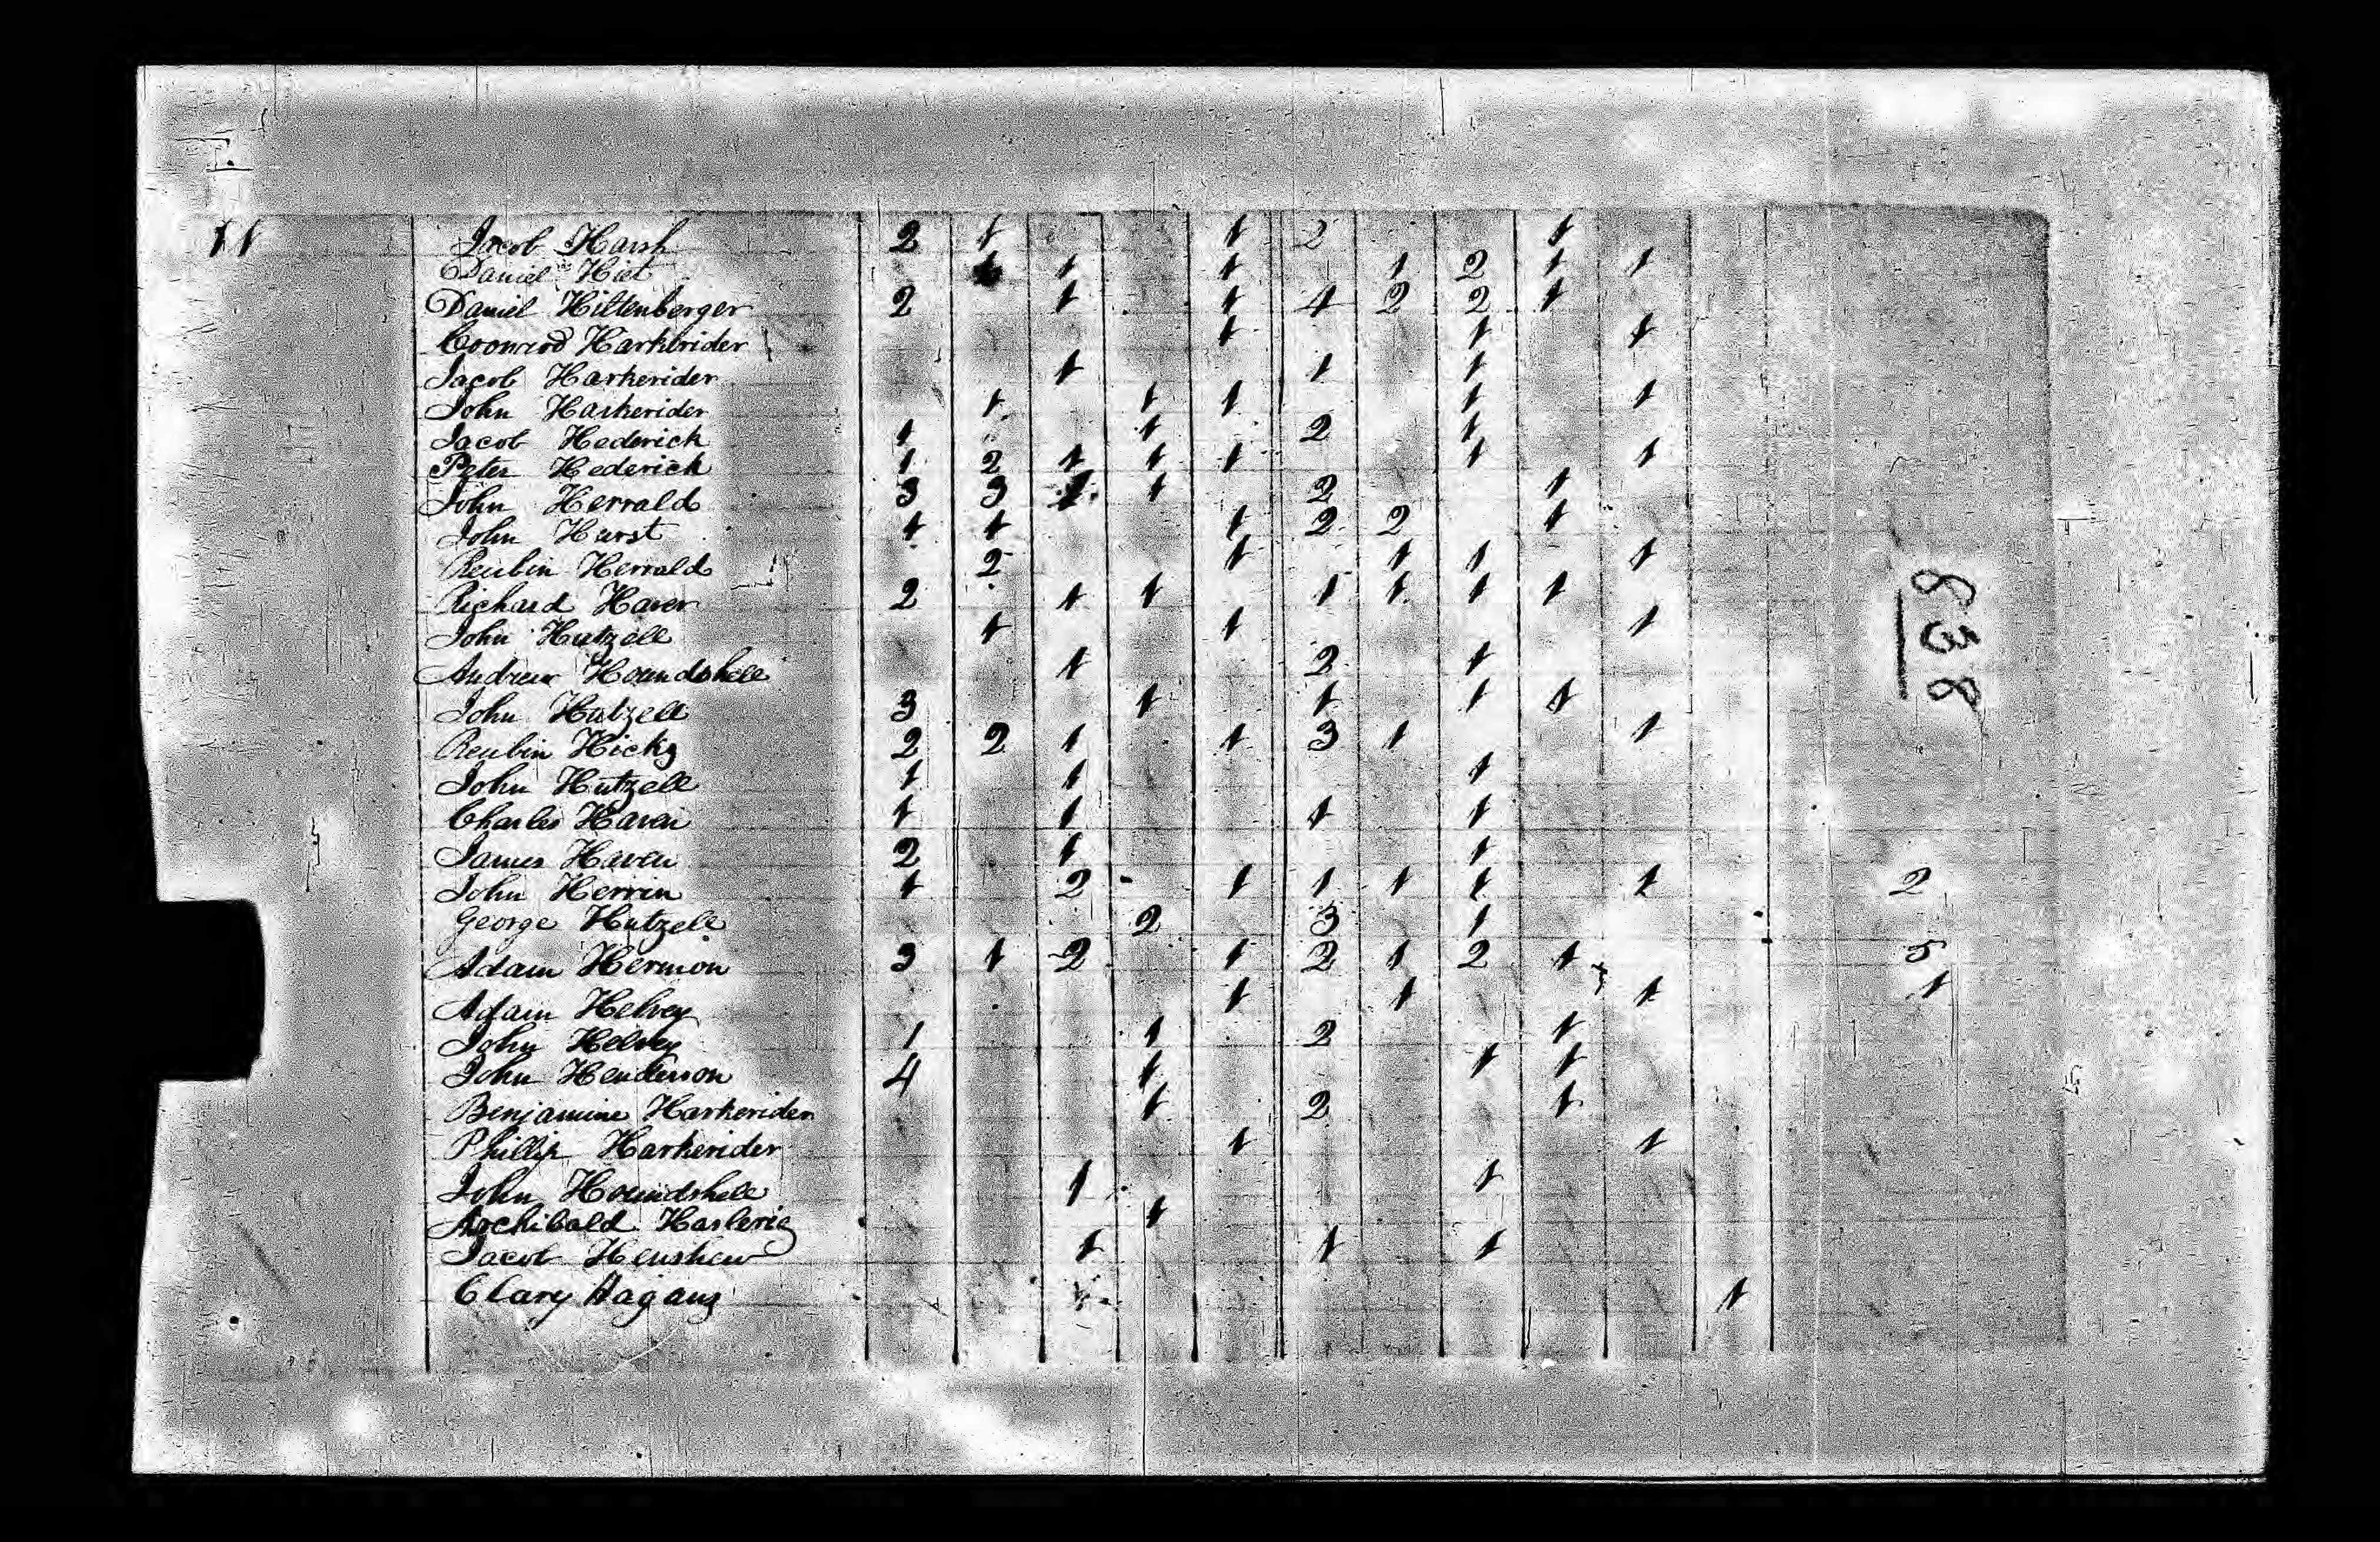 11 Jacob Harsh 2 1 1 2 1
Daniel Hiet 1 1 1 1 2 1 1
Daniel Hiltenberger 2 1 1 4 2 2 1
Coonrod Harkerider 1 1 1
Jacob Harkerider 1 1 1
John Harkerider 1 1 1 1 1
Jacob Hederick 1 1 2 1
Peter Hederick 1 2 1 1 1 1 1
John Herrald 3 3 1 2 1
John Hurst 1 1 1 2 2 1
Reubin Herrald 2 1 1 1 1
Richard Haven 2 1 1 1 1 1 1
John Hutzell 1 1 1
Andrew Houndshell 1 2 1
John Hutzell 3 1 1 1 1
Reubin Hicks 2 2 1 1 3 1 1
John Hutzell 1 1 1
Charles Haven 1 1 1 1
James Haven 2 1 1
John Herrin 1 2 1 1 1 1 1 2
George Hutzell 2 3 1
Adam Hermon 3 1 2 1 2 1 2 1 5
Adam Helvey 1 1 1 1
John Helvey 1 1 2 1
John Henderson 4 1 1 1
Benjamine Harkerider 1 2 1
Phillip Harkerider 1 1
John Houndshell 1 1
Archibald Haslerig 1
Jacob Henshew 1 1 1
Clary Hagans 1
838